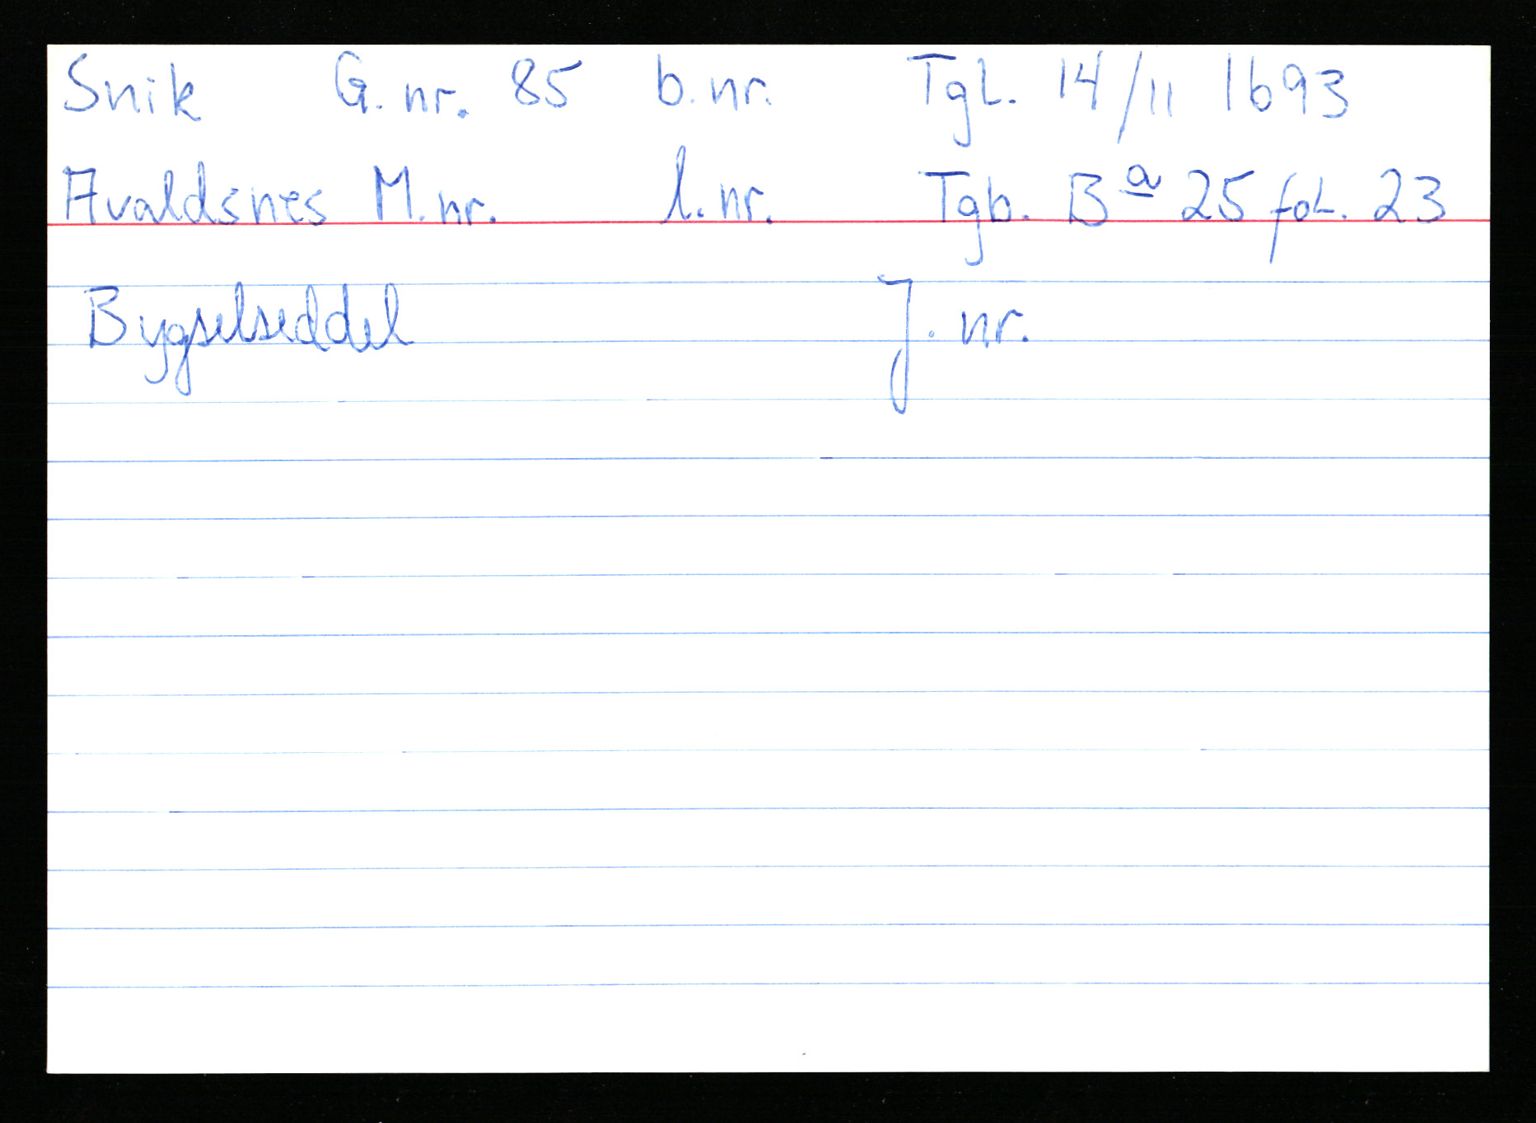 Snik G. nr. 85 b. nr. Tgl. 14/11 1693
Avaldsnes M. nr. l. nr. Tgb. Bª 25 fol. 23
Bygselseddel J. nr.